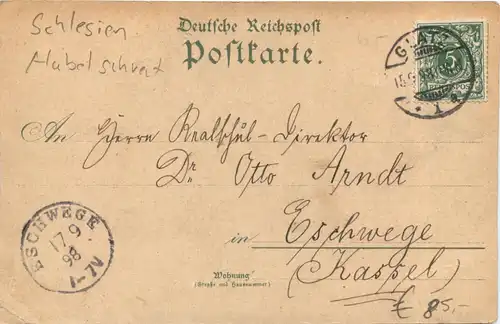 Schlesien
Habelschwert
Deutsche Reichspost
Postkarte.
GLATZ
5
An Herrn Realschul-Direktor
Dr Otto Arndt
in Eschwege
(Kassel)
ESCHWEGE
17 9
98
Wohnung
(Straße und Hausnummer)
€ 85,-